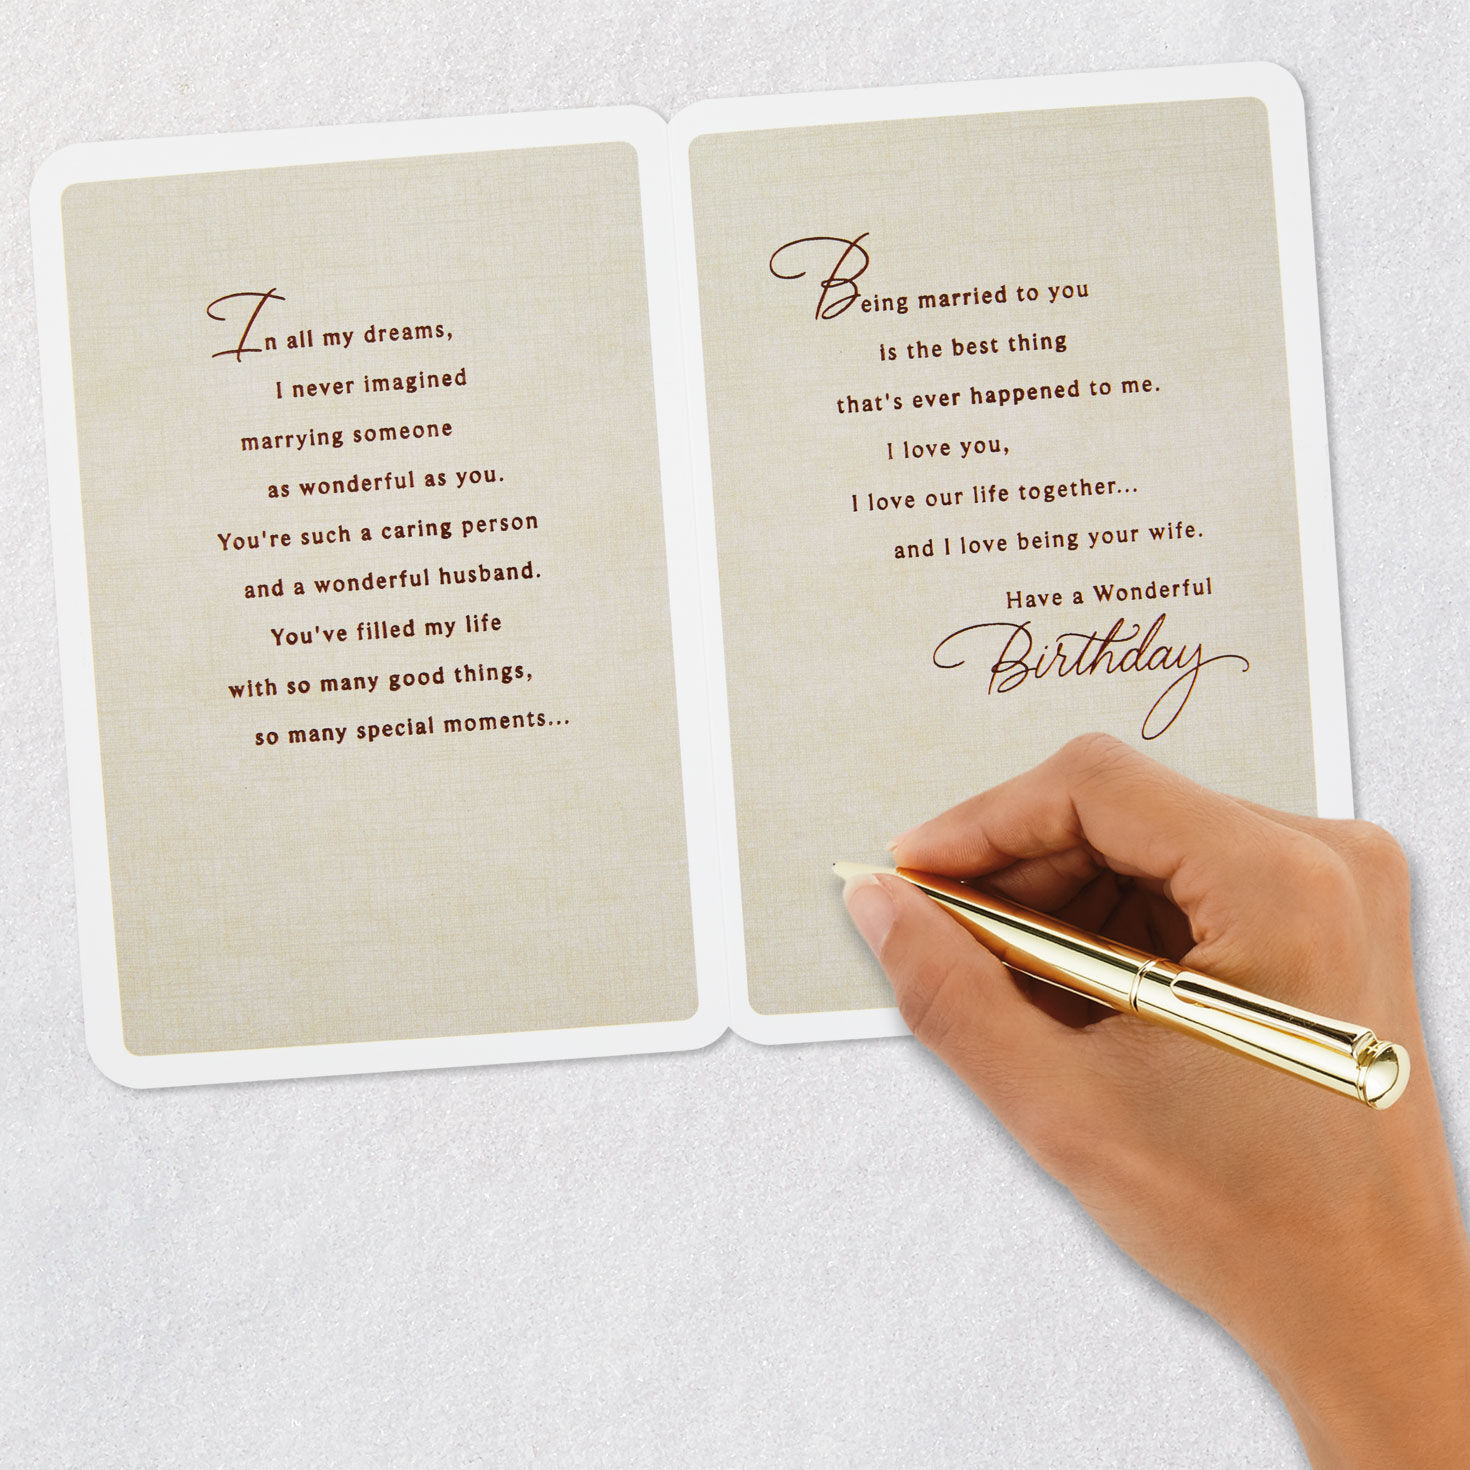 In all my dreams,
I never imagined
marrying someone
as wonderful as you.
You're such a caring person
and a wonderful husband.
You've filled my life
with so many good things,
so many special moments...
Being married to you
is the best thing
that's ever happened to me.
I love you,
I love our life together...
and I love being your wife.
Have a Wonderful
Birthday